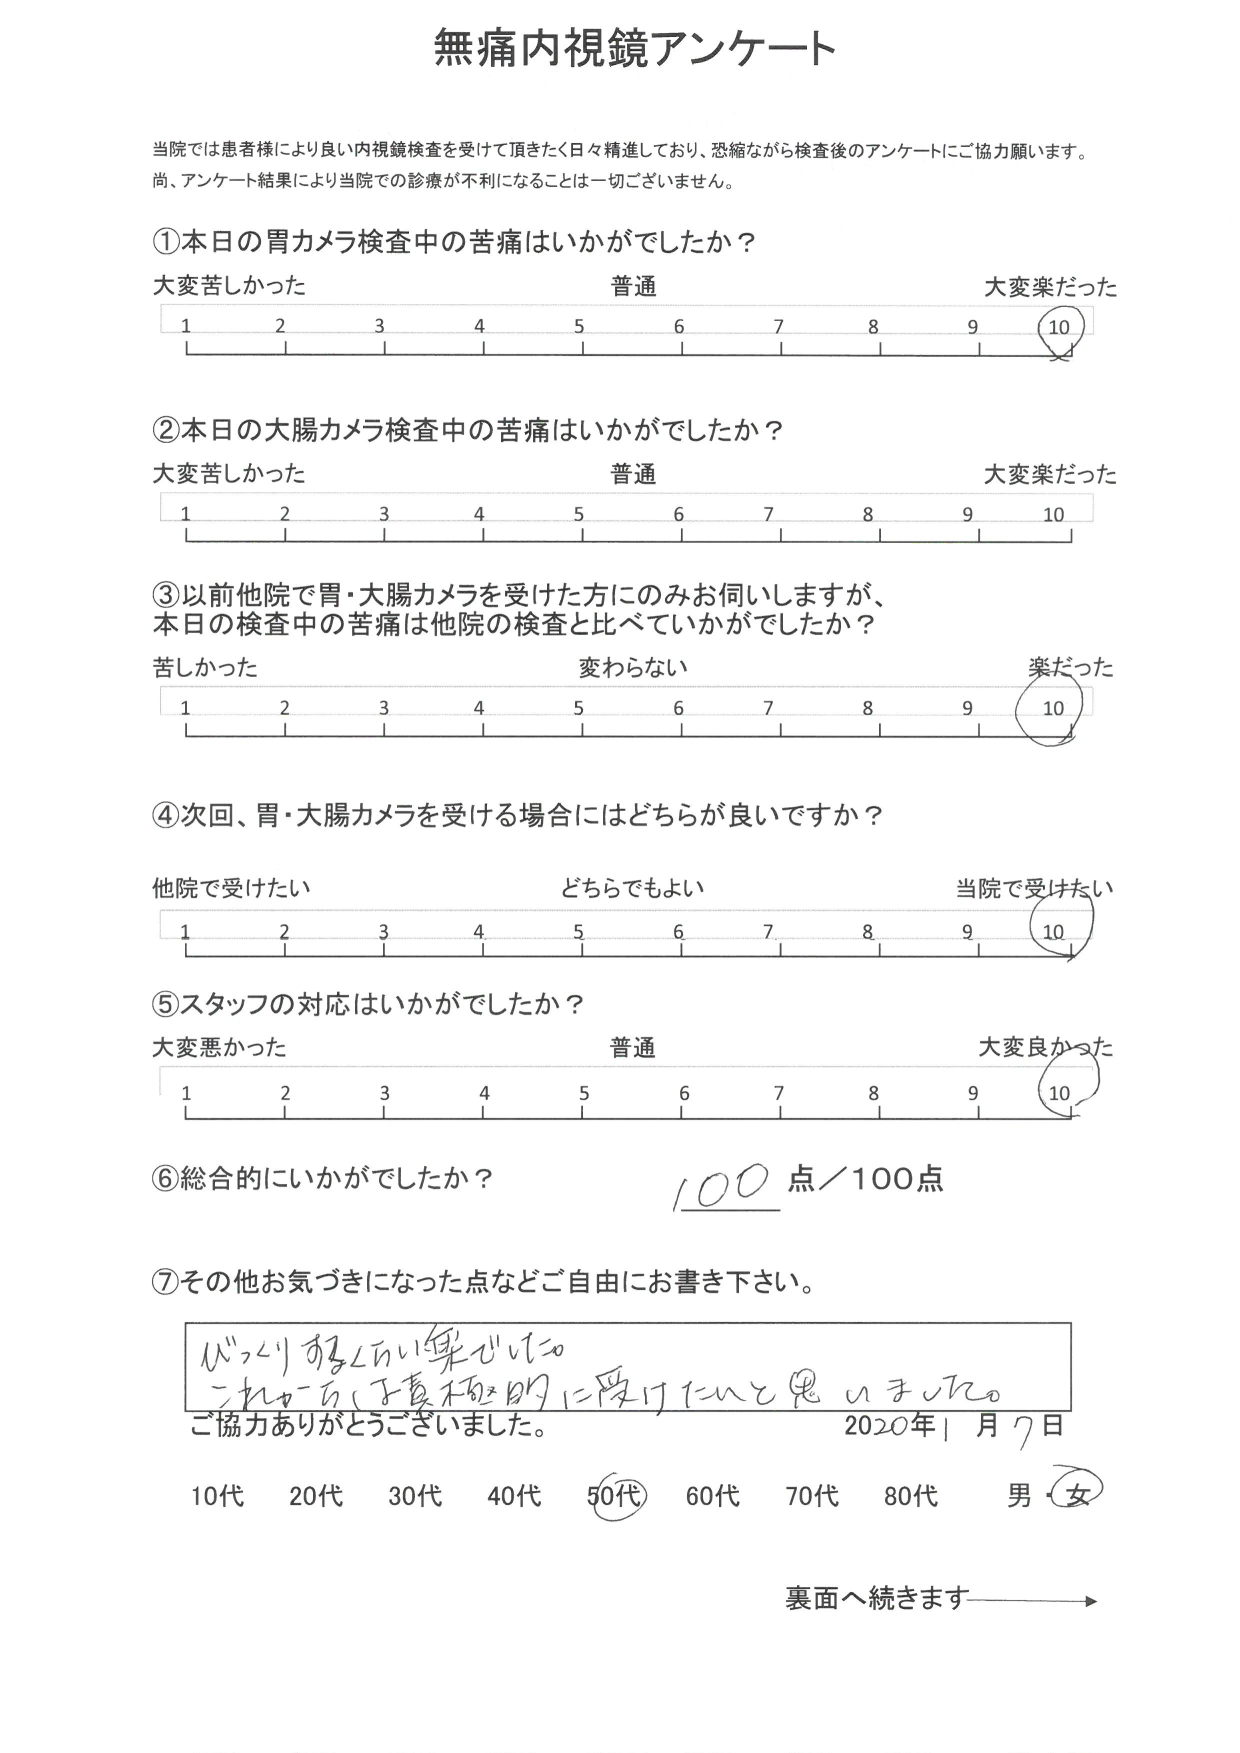 無痛内視鏡アンケート
当院では患者様により良い内視鏡検査を受けて頂きたく日々精進しており、恐縮ながら検査後のアンケートにご協力願います。
尚、アンケート結果により当院での診療が不利になることは一切ございません。
①本日の胃カメラ検査中の苦痛はいかがでしたか？
大変苦しかった 普通 大変楽だった
1 2 3 4 5 6 7 8 9 10
②本日の大腸カメラ検査中の苦痛はいかがでしたか？
大変苦しかった 普通 大変楽だった
1 2 3 4 5 6 7 8 9 10
③以前他院で胃・大腸カメラを受けた方にのみお伺いしますが、
本日の検査中の苦痛は他院の検査と比べていかがでしたか？
苦しかった 変わらない 楽だった
1 2 3 4 5 6 7 8 9 10
④次回、胃・大腸カメラを受ける場合にはどちらが良いですか？
他院で受けたい どちらでもよい 当院で受けたい
1 2 3 4 5 6 7 8 9 10
⑤スタッフの対応はいかがでしたか？
大変悪かった 普通 大変良かった
1 2 3 4 5 6 7 8 9 10
⑥総合的にいかがでしたか？ 100 点／100点
⑦その他お気づきになった点などご自由にお書き下さい。
びっくりするくらい楽でした。
これからは積極的に受けたいと思いました。
ご協力ありがとうございました。 2020年1月7日
10代 20代 30代 40代 50代 60代 70代 80代 男・女
裏面へ続きます